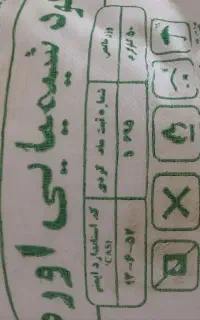 کود شیمیایی اوره
وزن خالص
۵۰ کیلوگرم
شماره ثبت ماده کودی
کد استاندارد ایمنی
(CAS)
۱۳-۶-۵۷